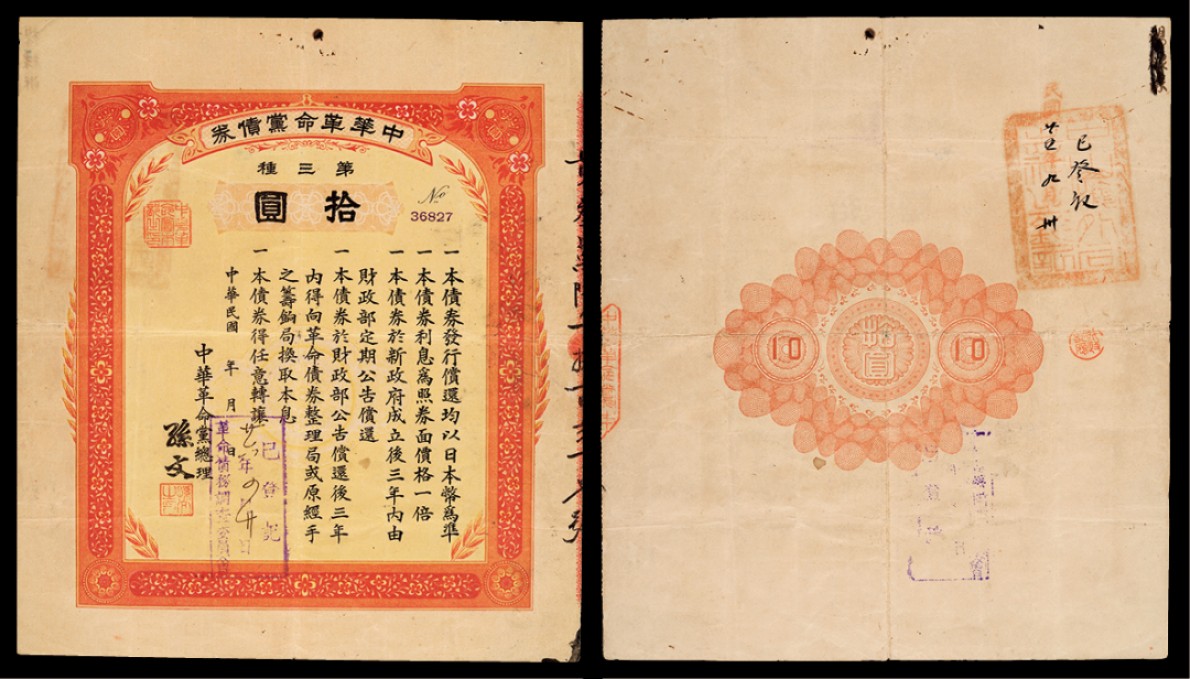 中華革命黨債券
第三種
拾圓
No
36827
一本債券發行償還均以日本幣為準
一本債券利息為照券面價格一倍
一本債券於新政府成立後三年內由
財政部定期公告償還
一本債券於財政部公告償還後三年
內得向革命債券整理局或原經手
之籌餉局換取本息
一本債券得任意轉讓
中華民國 年 月 日
中華革命黨總理
孫文
已登記
革命債務調查委員會
已登記
10
拾圓
10